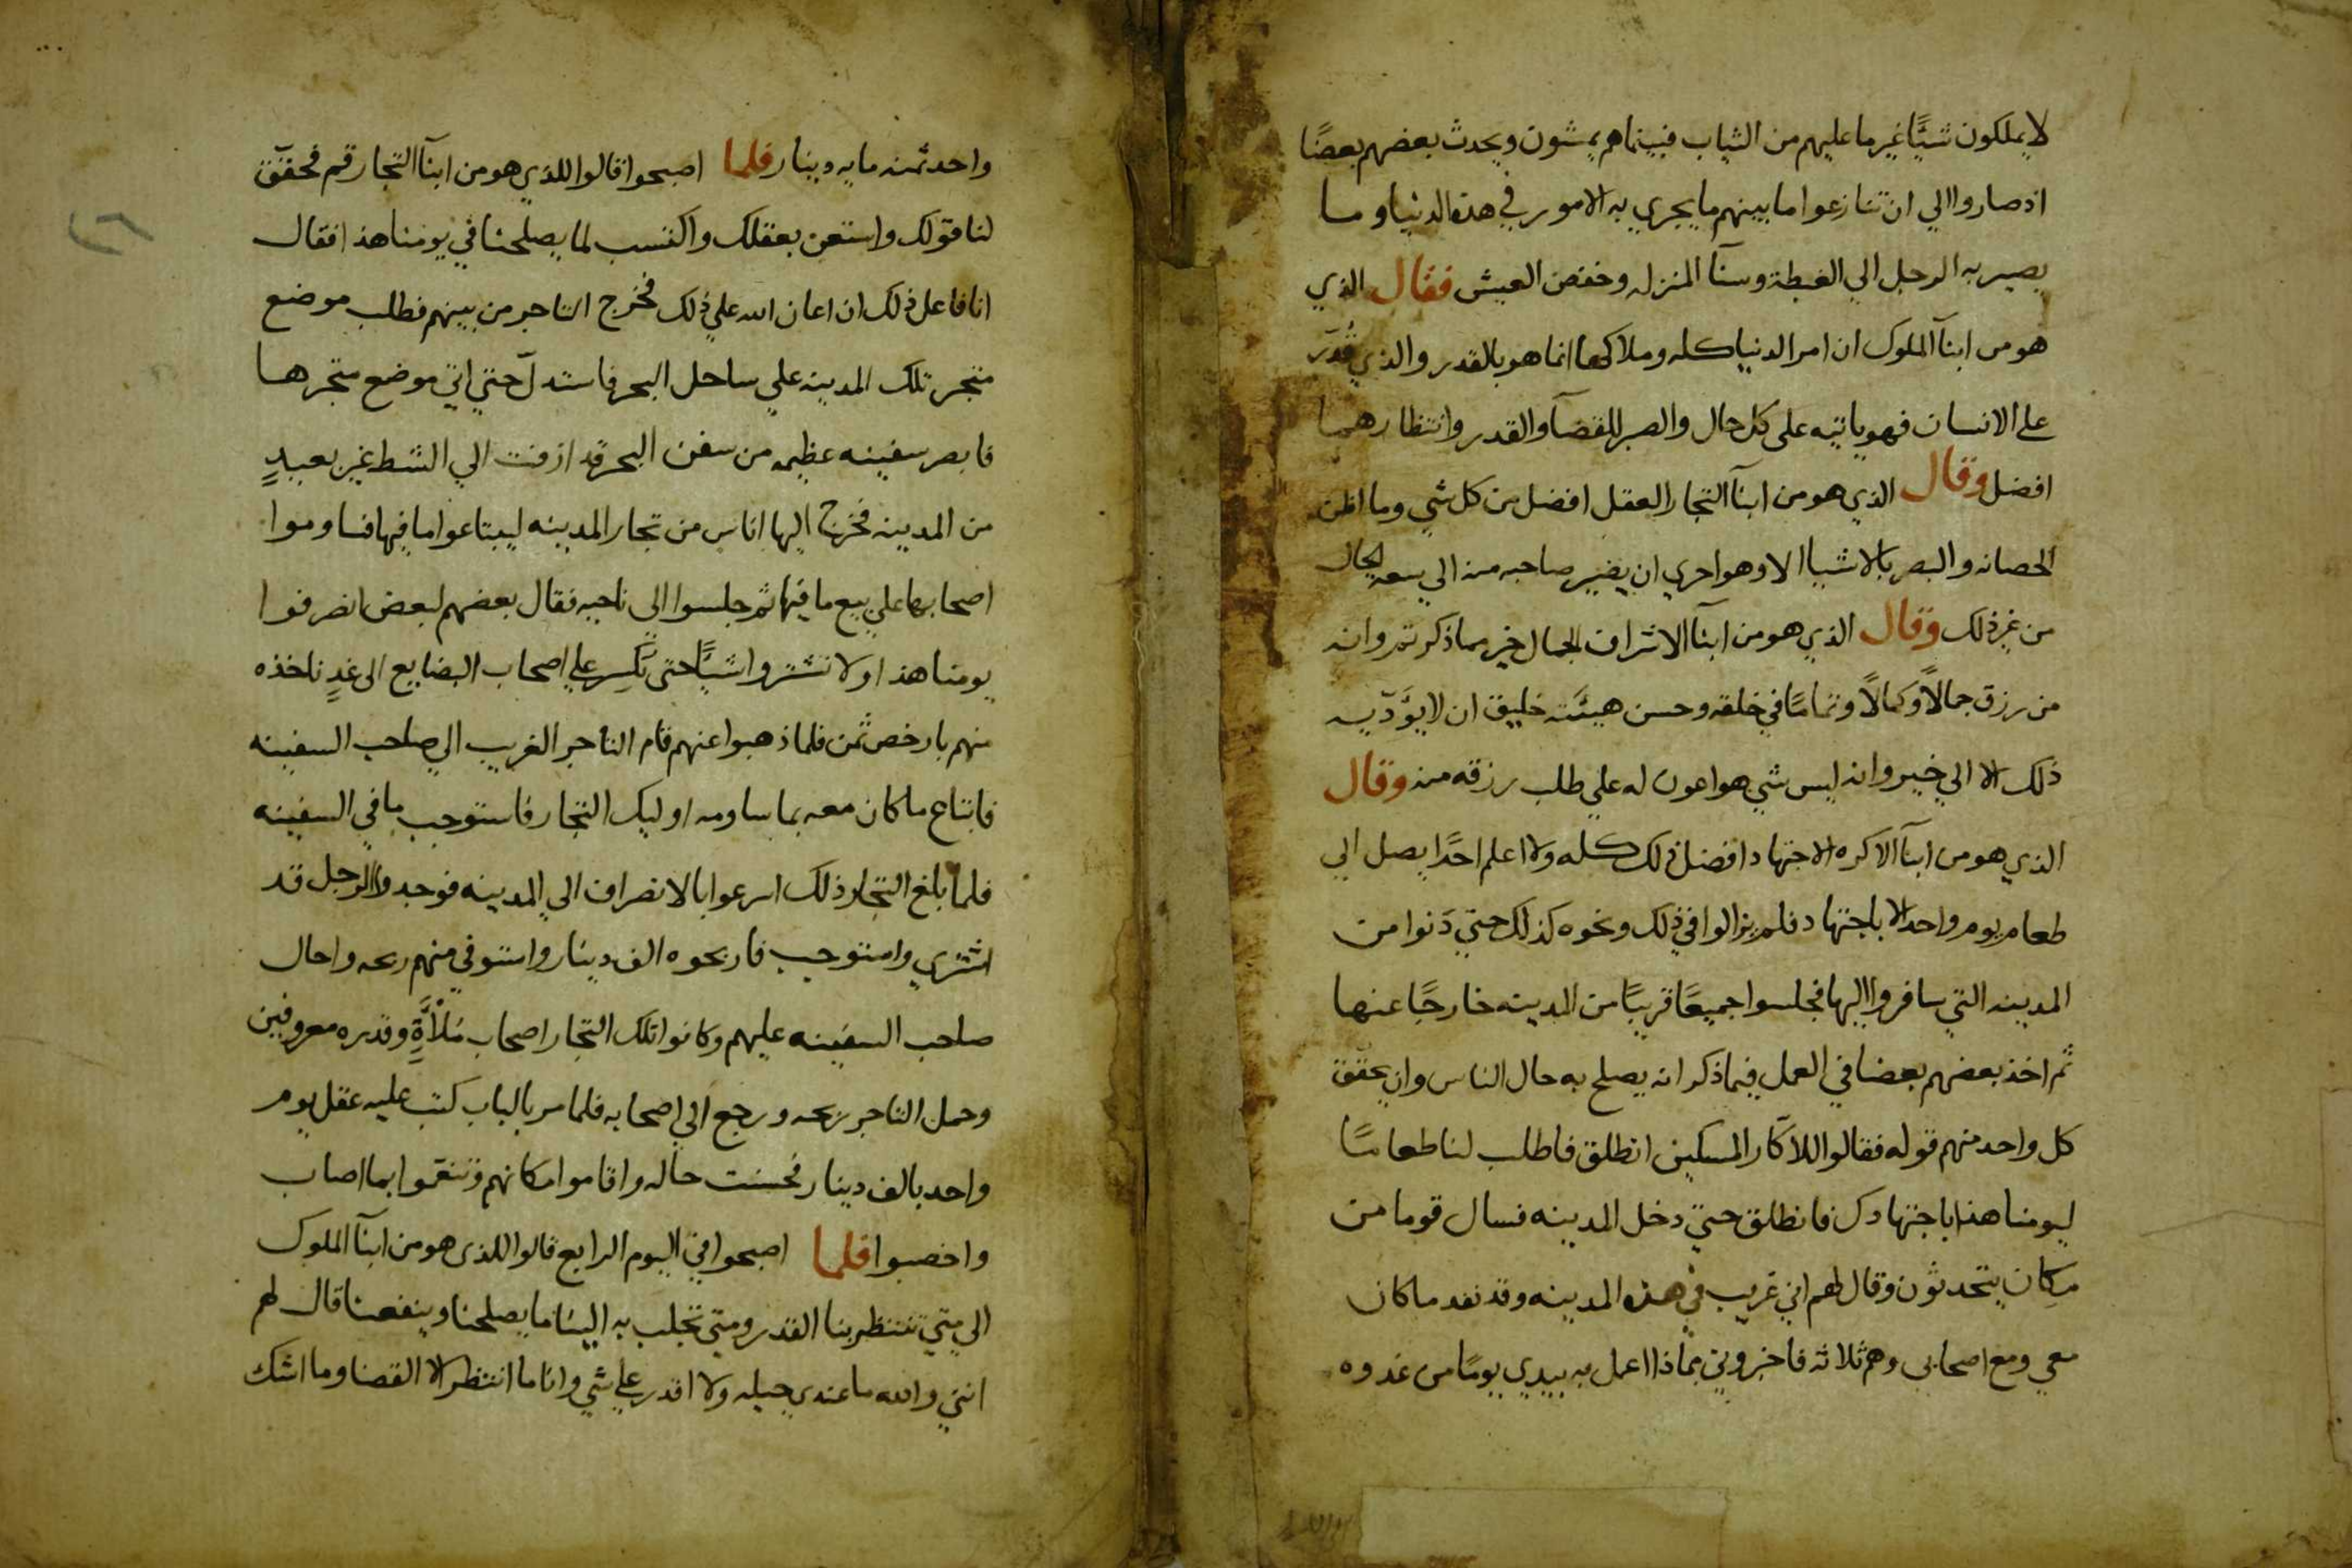 لا يملكون شيًّا غير ما عليهم من الثياب فبينما هم يمشون ويحدث بعضهم بعضًا
اذ صاروا الي ان تنازعوا ما بينهم ما يجري به الامور في هذه الدنيا وما
يصير به الرجل الي الغبطة وسنآ المنزله وخفض العيش فقال الذي
هو من ابنآ الملوك ان امر الدنيا كله وملاكها انما هو بالقدر والذي قُدّر
على الانسان فهو ياتيه على كل حال والصبر للقضآ والقدر وانتظارهما
افضل وقال الذي هو من ابنآ التجار العقل افضل من كل شي وما اظن
الحصانه والبصر بالاشيا الا وهو احري ان يصير صاحبه منه الي سعه الحال
من غير ذلك وقال الذي هو من ابنآ الاشراف الجمال خير مما ذكرتم وانه
من رزق جمالًا وكمالًا وتمامًا في خلقه وحسن هيئته خليق ان لا يؤدّيه
ذلك الا الي خير وانه ليس شي هو اعون له علي طلب رزقه منه وقال
الذي هو من ابنآ الاكره الاجتهاد افضل ذلك كله ولا اعلم احدًا يصل الي
طعام يوم واحد الا باجتهاد فلم يزالوا في ذلك ونحوه كذلك حتي دَنوا من
المدينه التي سافروا اليها فجلسوا جميعًا قريبًا من المدينه خارجًا عنها
ثم اخذ بعضهم بعضا في العمل فيما ذكر انه يصلح به حال الناس وان يحقق
كل واحد منهم قوله فقالوا للاكّار المسكين انطلق فاطلب لنا طعامًا
ليومنا هذا باجتهادك فانطلق حتي دخل المدينه فسال قوما من
مكان يتحدثون وقال لهم اني غريب في هذه المدينه وقد نفد ما كان
معي ومع اصحابي وهم ثلاثه فاخبروني بماذا اعمل به بيدي يومًا من غدوه
واحد ثمنه مايه دينار فلما اصبحوا قالوا للذي هو من ابنآ التجار قم فحقّق
لنا قولك واستعن بعقلك واكتسب لما يصلحنا في يومنا هذا فقال
انا فاعل ذلك ان اعان الله علي ذلك فخرج التاجر من بينهم فطلب موضع
متجر تلك المدينه علي ساحل البحر فاستدلّ حتي اتي موضع متجرها
فابصر سفينه عظيمه من سفن البحر قد ازفت الي الشط غير بعيدٍ
من المدينه فخرج اليها اناس من تجار المدينه ليبتاعوا ما فيها فساوموا
اصحابها علي بيع ما فيها ثم جلسوا الي ناحيه فقال بعضهم لبعض انصرفوا
يومنا هذا ولا تشتروا شيًّا حتى نكسر علي اصحاب البضايع الى غدٍ ناخذه
منهم بارخص ثمن فلما ذهبوا عنهم قام التاجر الغريب الي صاحب السفينه
فابتاع ما كان معه بما ساومه اوليك التجار فاستوجب ما في السفينه
فلما بلغ التجار ذلك اسرعوا بالانصراف الي المدينه فوجدوا الرجل قد
اشتري واستوجب فاربحوه الف دينار واستوفي منهم ربحه واحال
صاحب السفينه عليهم وكانوا تلك التجار اصحاب مَلأةٍ وقدره معروفين
وحمل التاجر ربحه ورجع الي اصحابه فلما مر بالباب كتب عليه عقل يوم
واحد بالف دينار فحسنت حاله واقاموا مكانهم وتنعموا بما اصاب
واخصبوا فلما اصبحوا في اليوم الرابع قالوا للذي هو من ابنآ الملوك
الي متي تنتظر بنا القدر ومتي تجلب به الينا ما يصلحنا وينفعنا قال لهم
انني والله ما عندي حيله ولا اقدر علي شي وانا ما انتظر الا القضا وما اشك